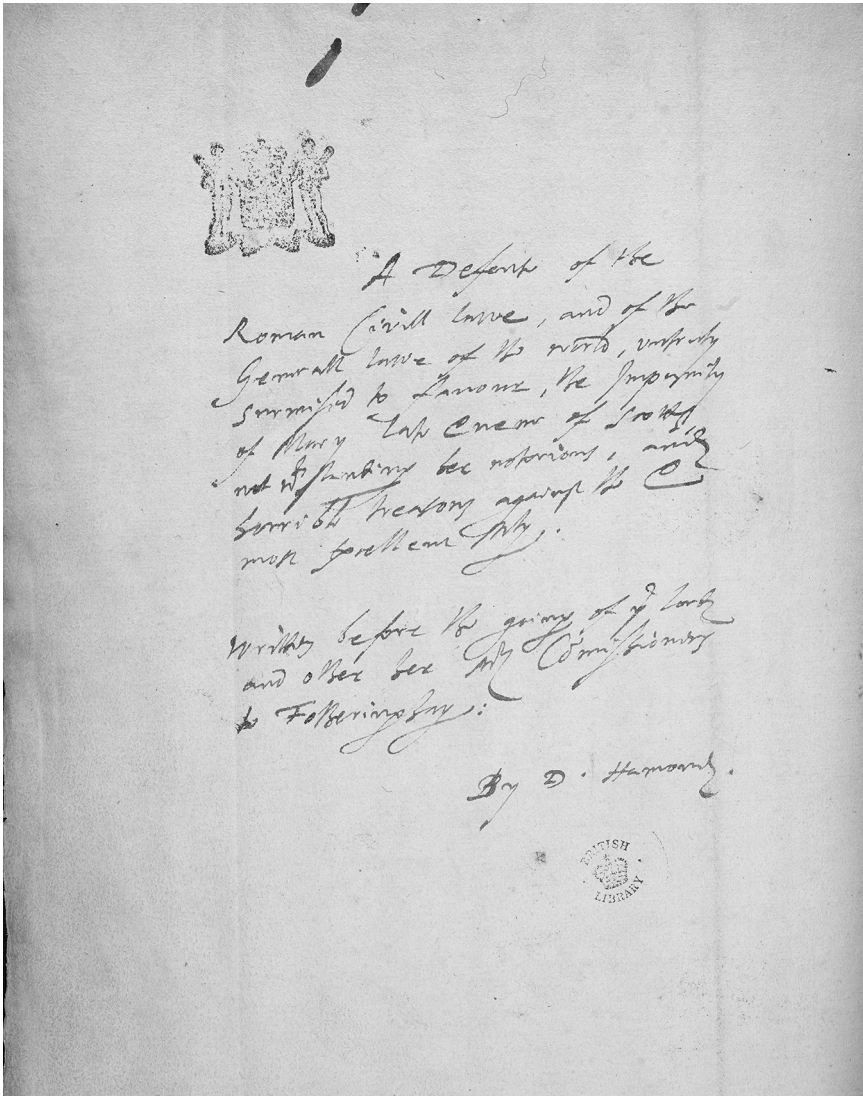 A Defence of the
Roman Civill lawe, and of the
Generall lawe of the world, untruely
surmised to favoure, the Impunity
of Mary late Quene of Scotts,
not wthstanding her notorious, and
horrible treasons against the Q
most Excellent Maty.
Written before the going of ye lords
and other her Mats Comissioners
to Fotheringhay:
By D. Hamond.
BRITISH
LIBRARY